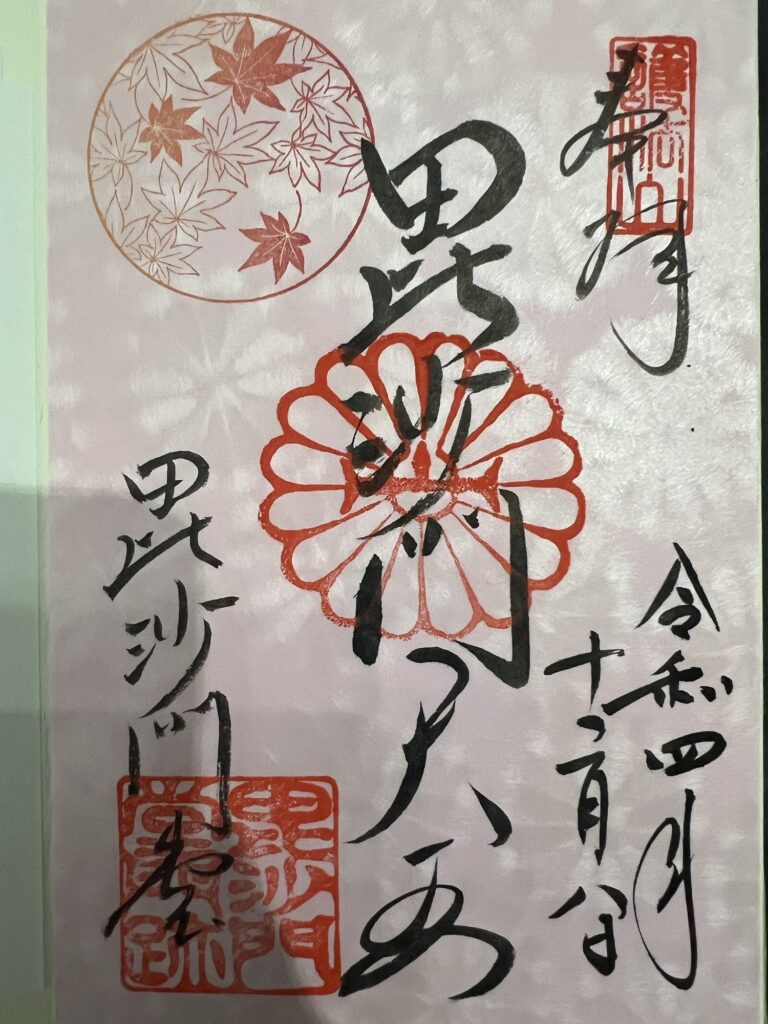 奉拝
令和四年
十二月八日
毘沙門天王
毘沙門堂
護法山